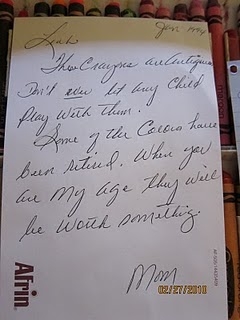 Leah
These Crayons are Antiques
Don't ever let any Child
Play with them.
Some of the Colors have
been retired. When you
are my age they will
be worth something.
Mom
Afrin
02/27/2010